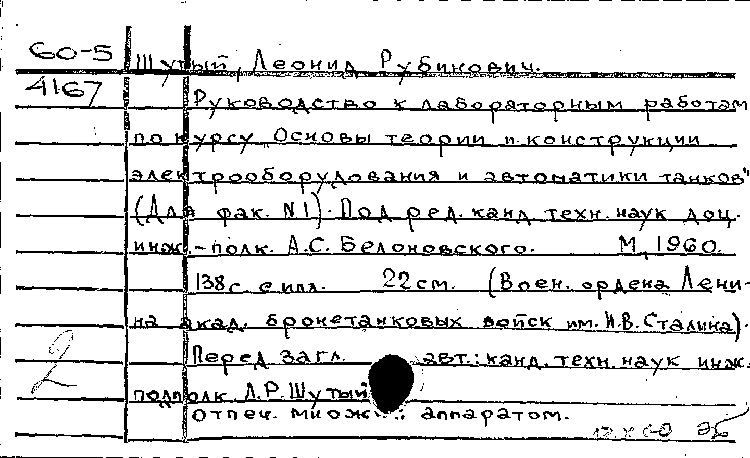 60-5 Шутый, Леонид Рубинович.
4167
Руководство к лабораторным работам
по курсу „Основы теории и конструкции
электрооборудования и автоматики танков"
(Для фак. N1). Под ред. канд. техн. наук доц.
инж.-полк. А.С. Белоновского. М, 1960.
138с. с илл. 22см. (Воен. ордена Лени-
на акад. бронетанковых войск им. И.В. Сталина).
2 Перед загл. авт.: канд. техн. наук инж.
подполк. Л.Р. Шутый
отпеч. множ. аппаратом.